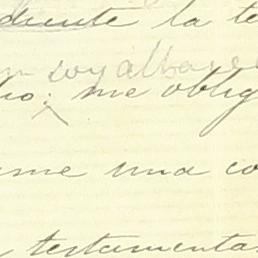 diente la te
n soy albace
ho; me oblig
me una co
testamenta